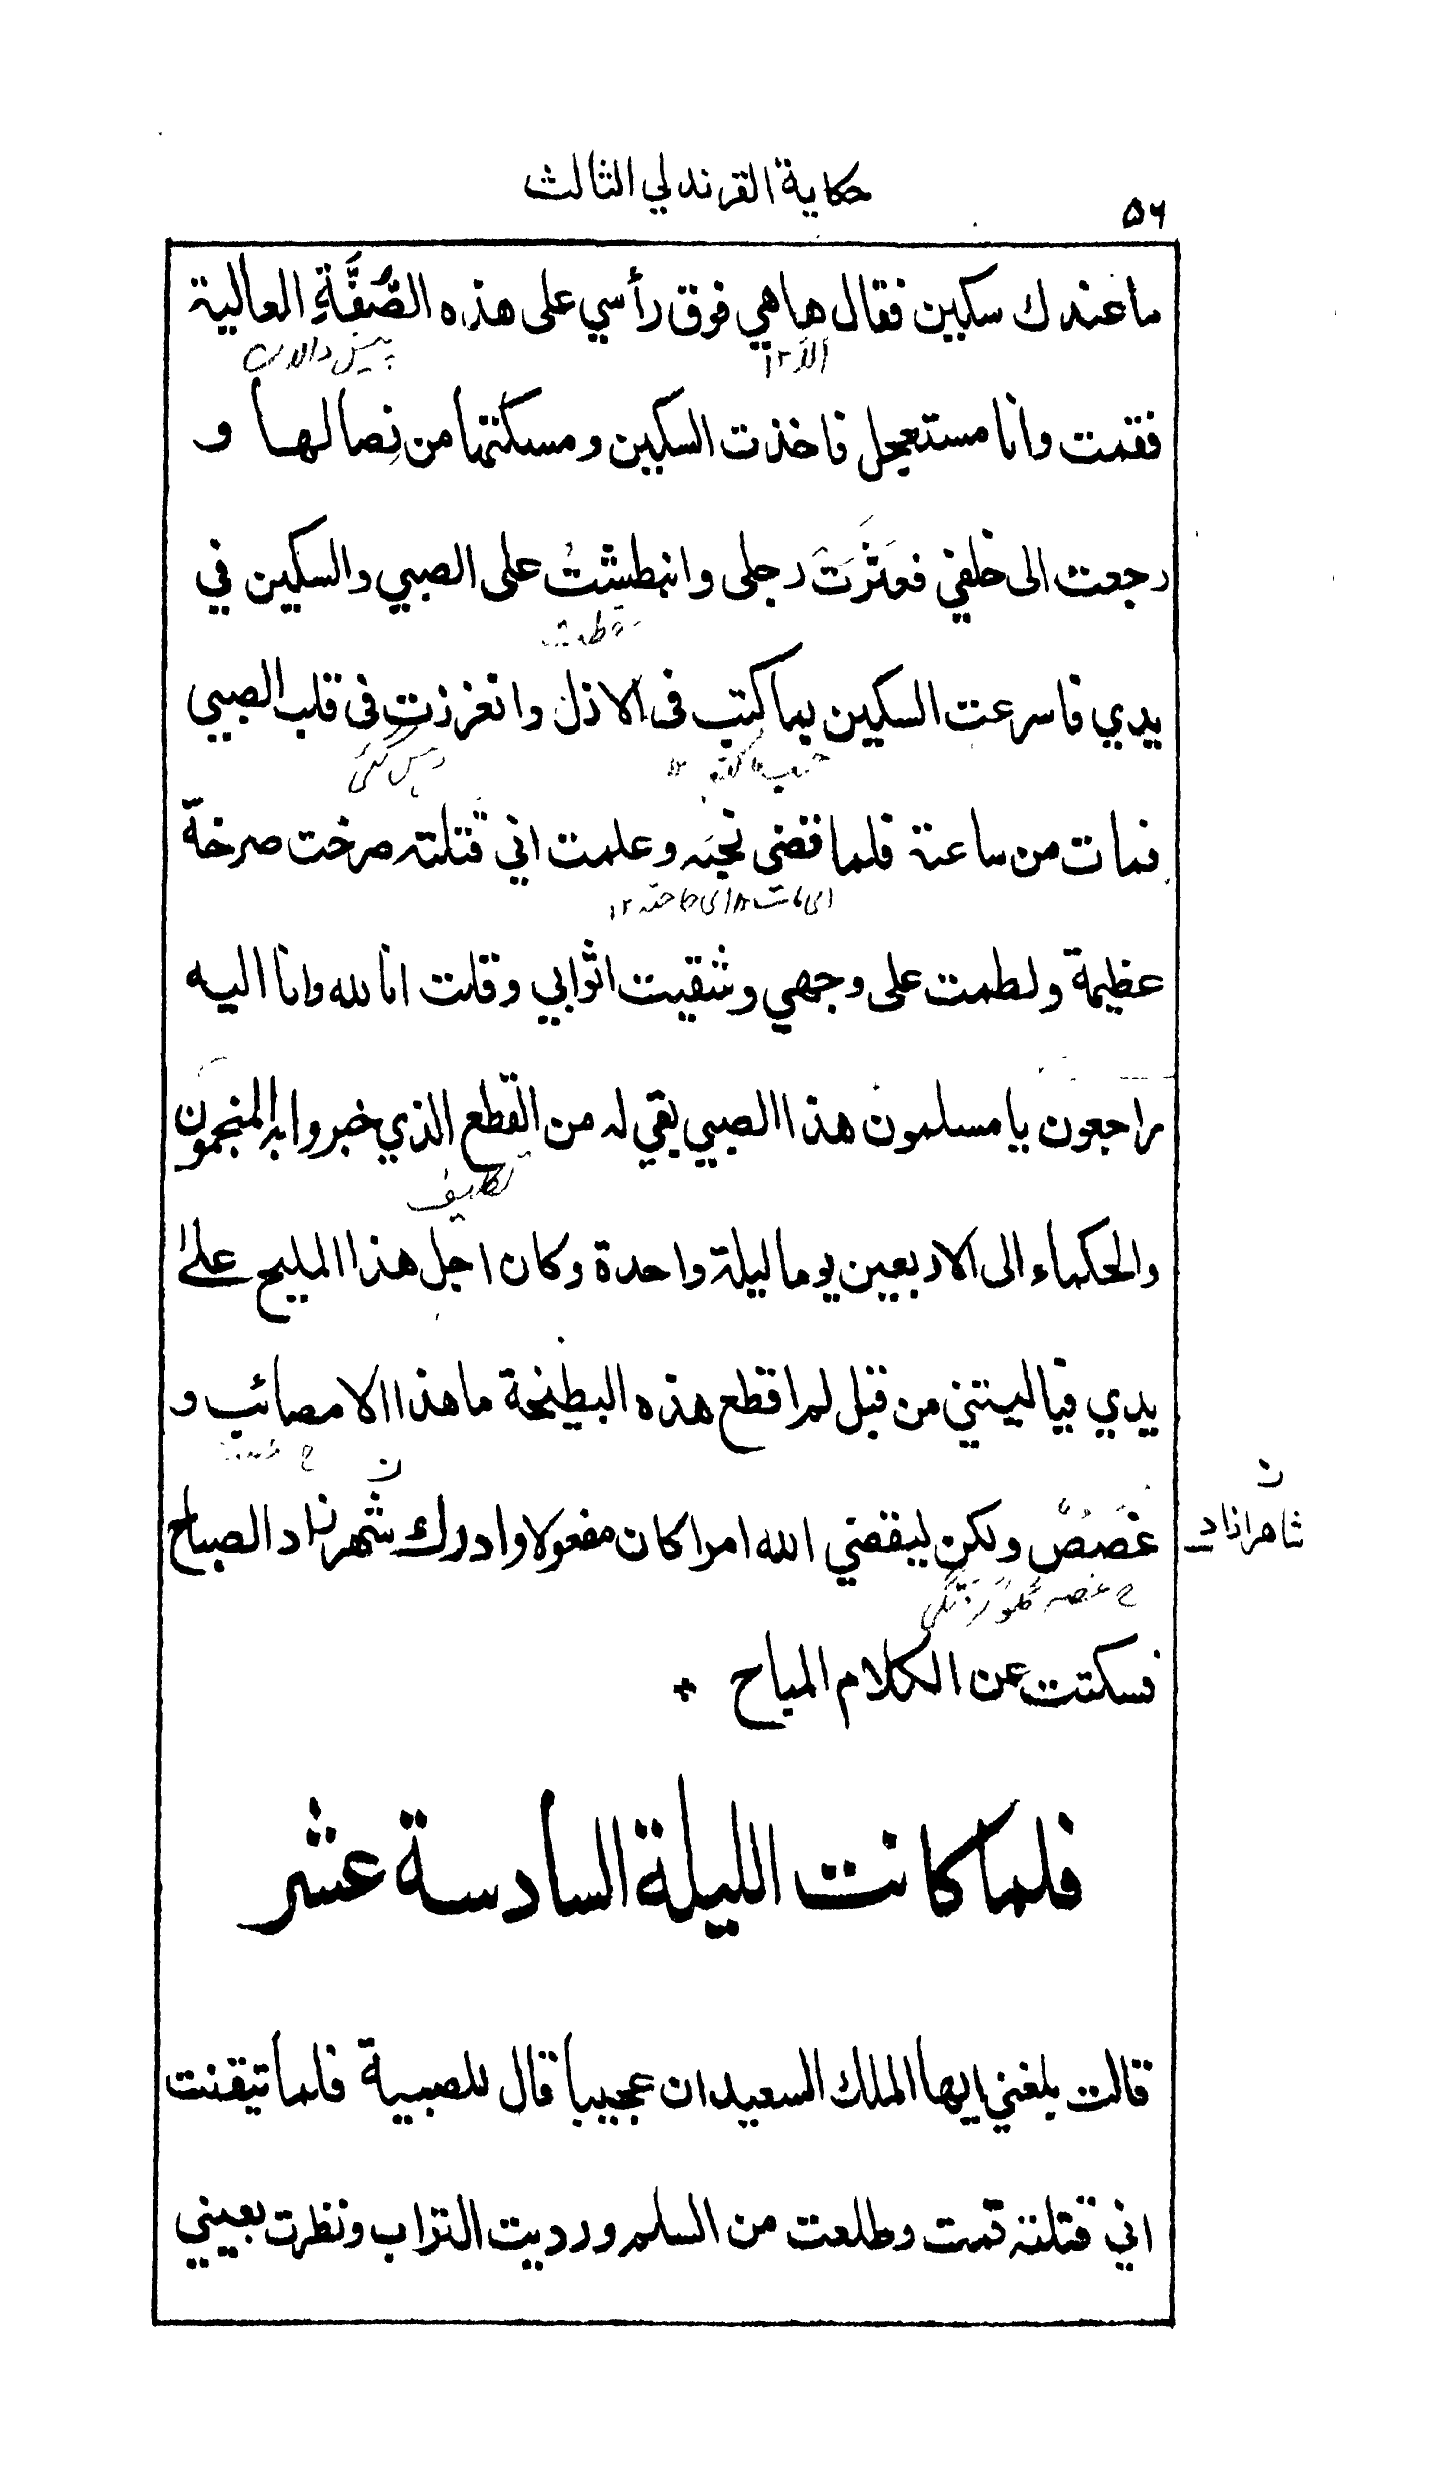 حكاية القرندلي الثالث
۵۶
ما عندك سكين فقال ها هي فوق رأسي على هذه الصُّفَّةِ العالية
فقمت وانا مستعجل فاخذت السكين ومسكتها من نِصالها و
رجعت الى خلفي فعَثَرَتَ رجلى وانبطشتُ على الصبي والسكين في
يدي فاسرعت السكين بما كتب فى الازل وانغرزت فى قلب الصبي
فمات من ساعته فلما قضى نحبَه وعلمت اني قتلته صرخت صرخةً
عظيمة ولطمت على وجهي وشقيت اثوابي وقلت انا لله وانا اليه
راجعون يا مسلمون هذا الصبي بقي له من القطع الذي خبروا به المنجمون
والحكماء الى الاربعين يوما ليلة واحدة وكان اجل هذا المليح على
يدي فيا ليتني من قبل لم اقطع هذه البطيخة ما هذا الا مصائب و
غُصَصٌ ولكن ليقضي الله امرا كان مفعولا وادرك شهرزاد الصباح
ن
شاهرازاد
فسكتت عن الكلام المباح +
فلما كانت الليلة السادسة عشر
قالت بلغني ايها الملك السعيد ان عجيباً قال للصبية فلما تيقنت
اني قتلته قمت وطلعت من السلم ورديت التراب ونظرت بعيني